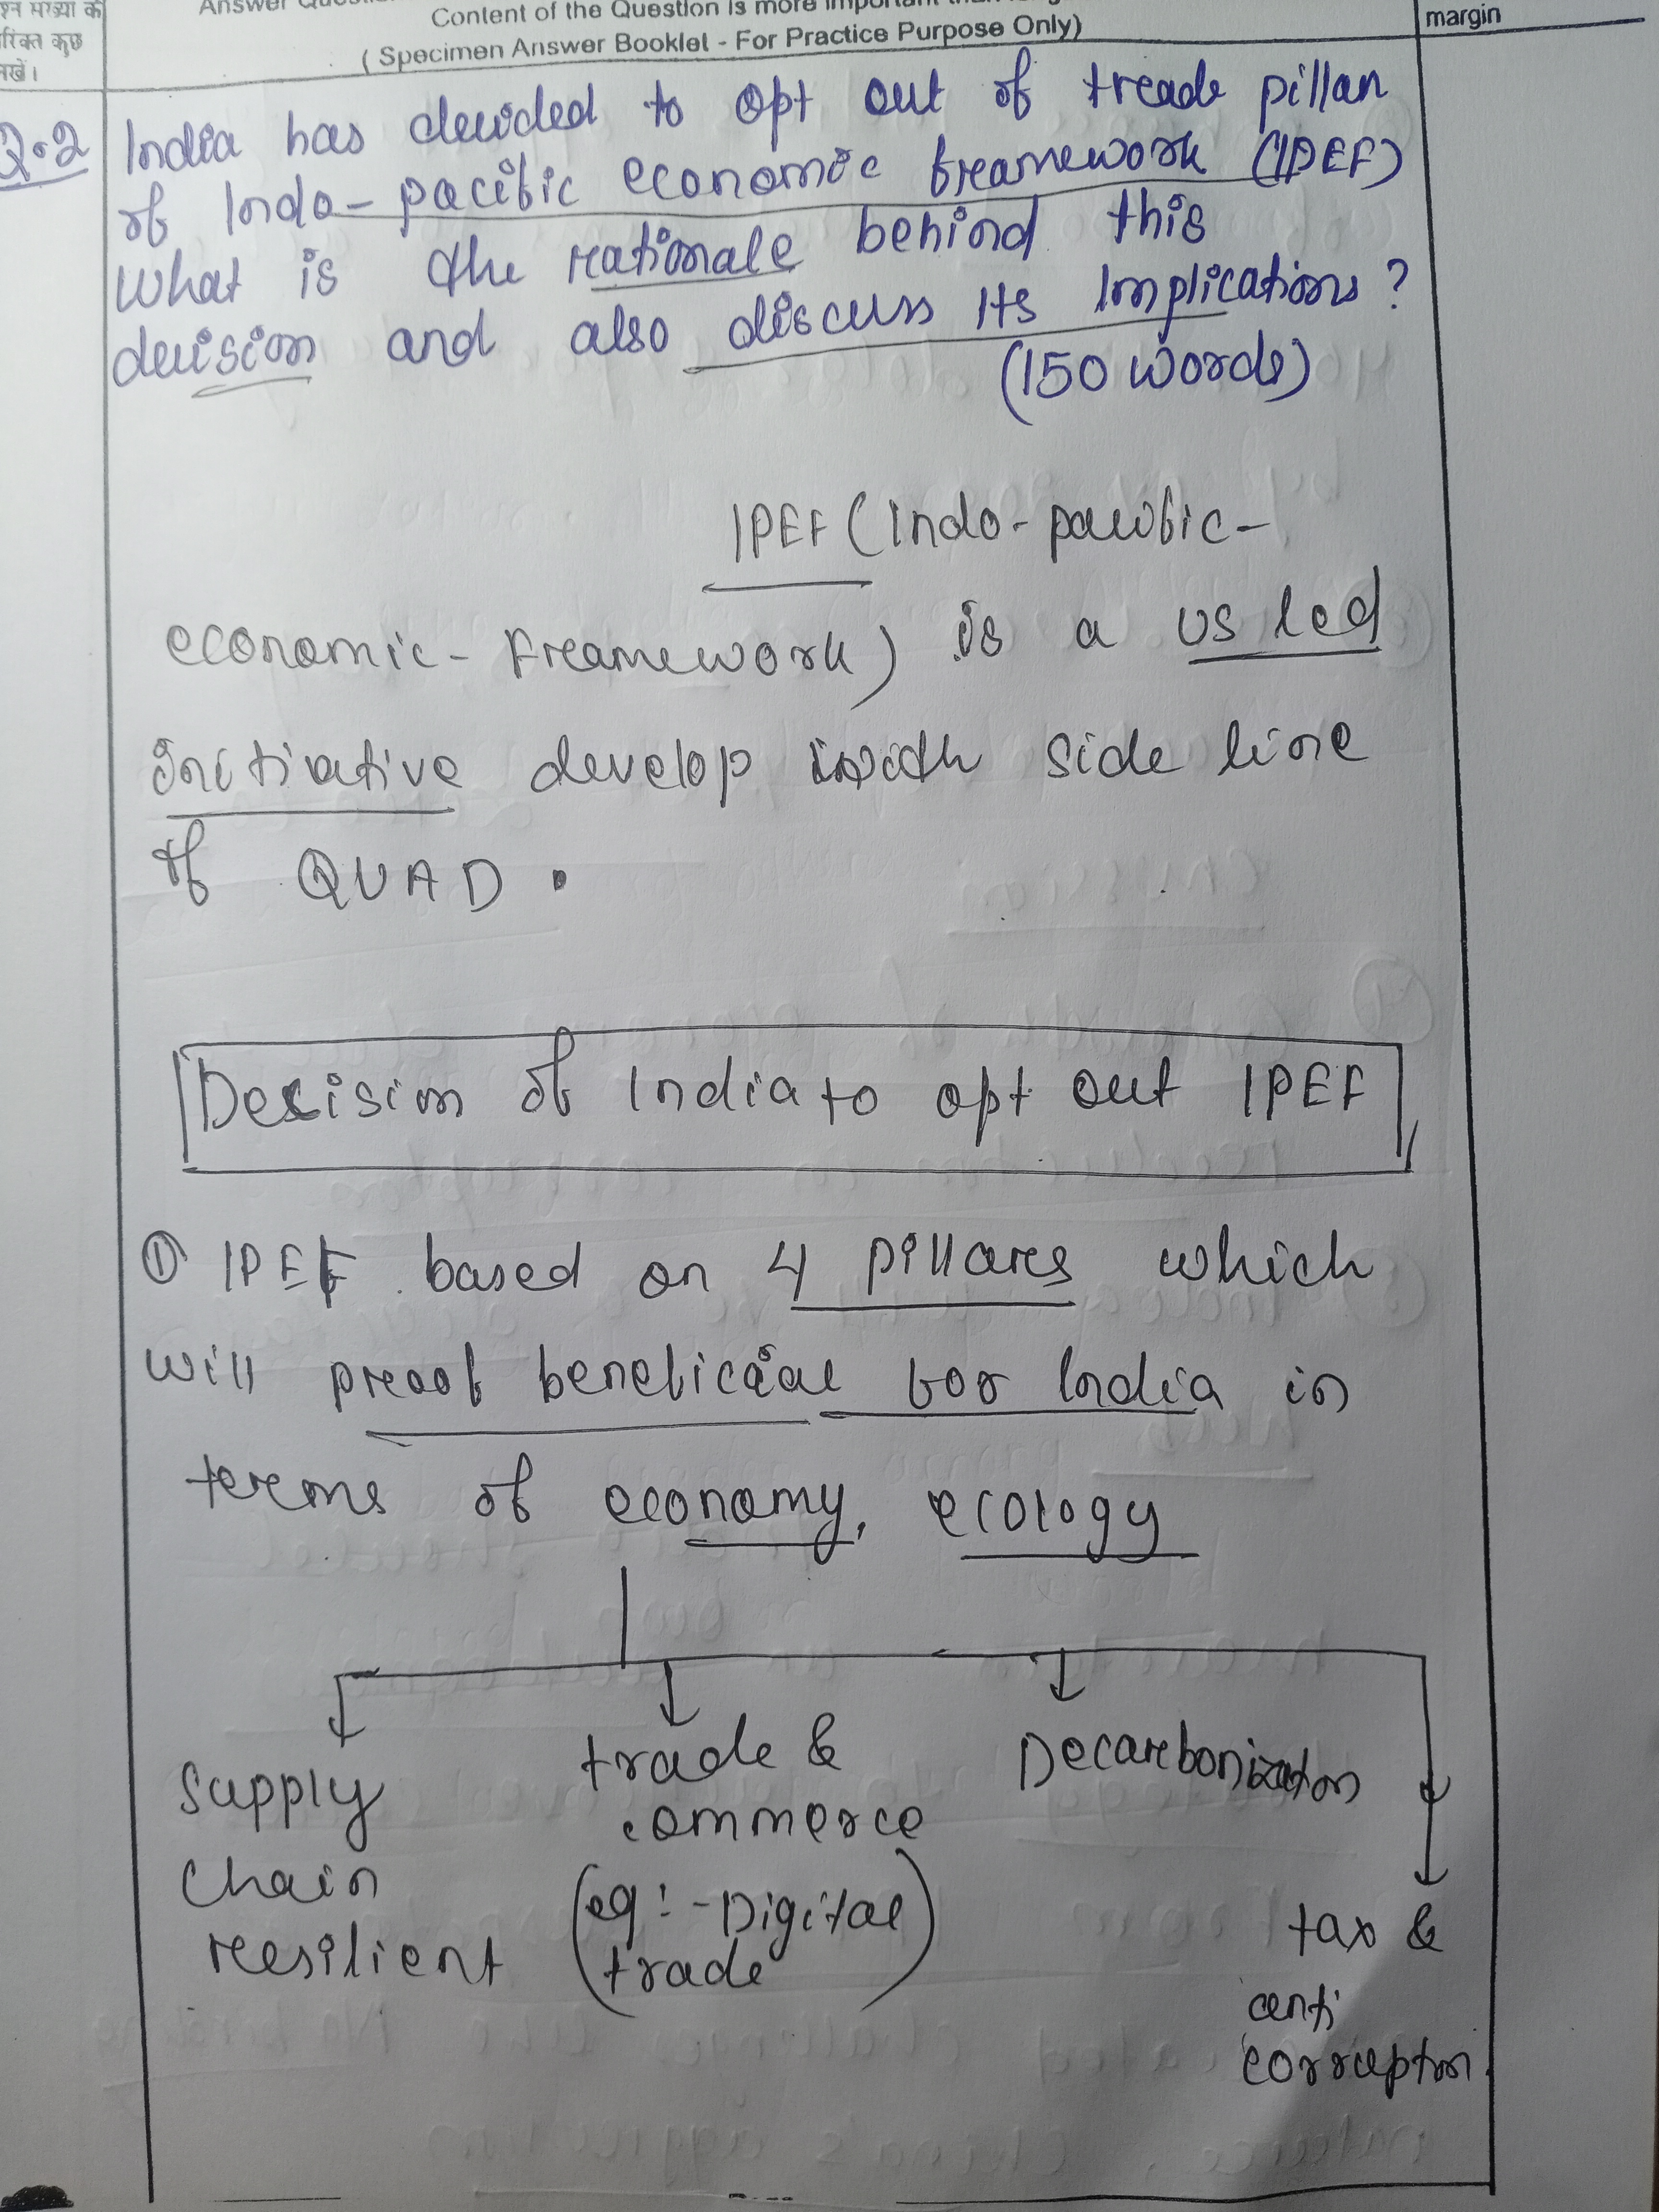 श्न संख्या के
रिक्त कुछ
नखें।
Content of the Question is more important than
( Specimen Answer Booklet - For Practice Purpose Only)
margin
Q.2 India has decided to opt out of treade pillar
of Indo-pacific economic framework (IPEF)
What is the rationale behind this
decision and also discuss its Implications?
(150 words)
IPEF (Indo-pacific-
economic-Framework) is a US led
initivative develop with side line
of QUAD.
Decision of India to opt out IPEF
① IPEF based on 4 pillars which
will proof beneficial for India in
terms of economy, ecology
Supply
Chain
resilient
trade &
commerce
(eg:-Digital
trade)
Decarbonization
tax &
anti
corruption